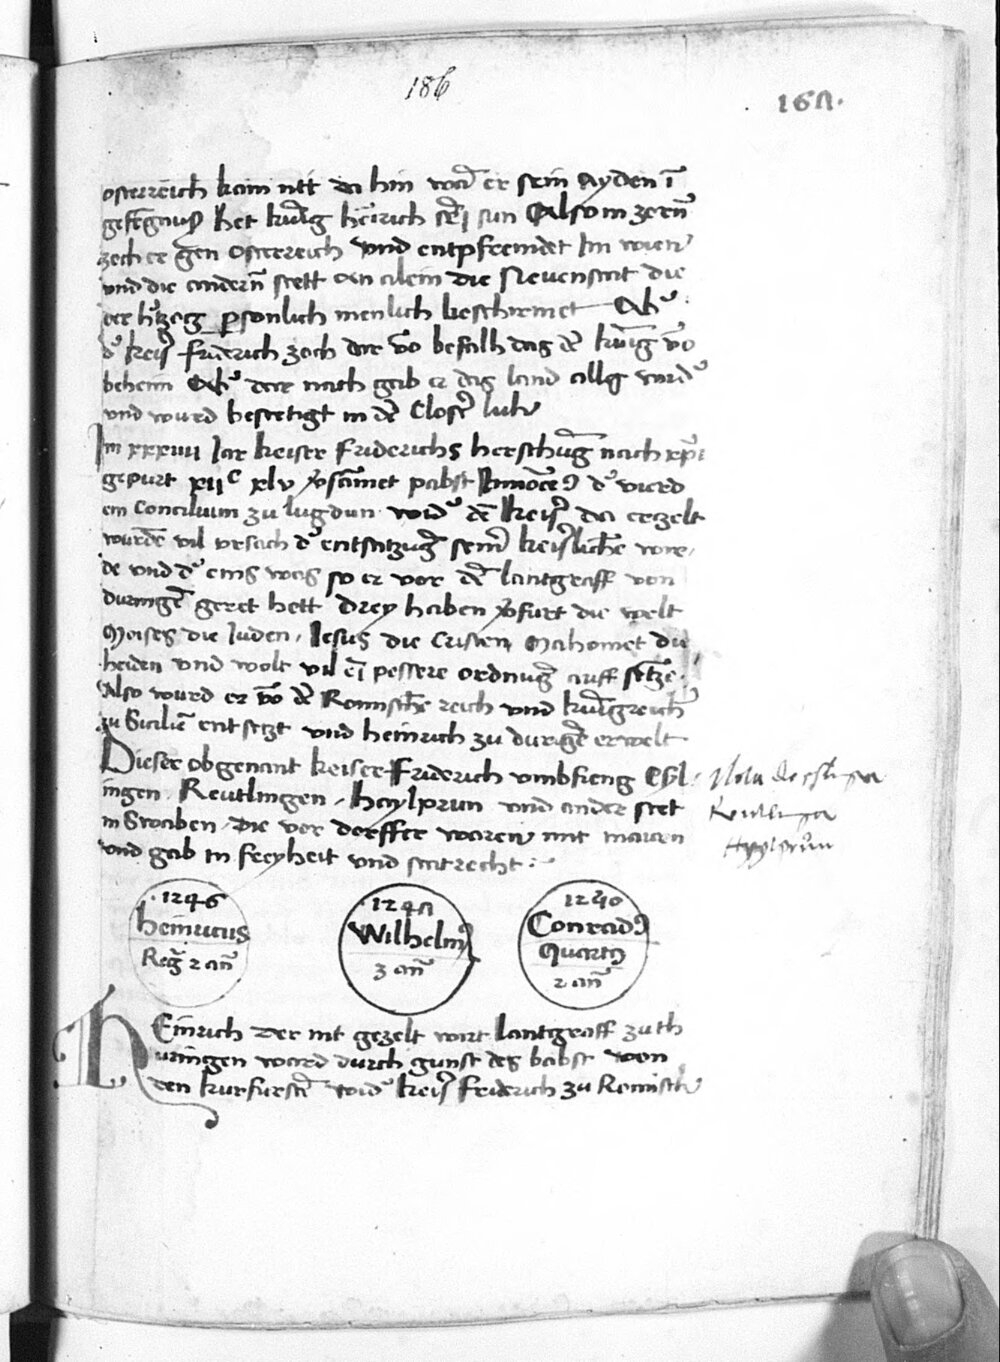 186
167.
osterreich kam nit da hin wan er sein ayden in
gefegnus het kunig heinrich sei sun Also in zorn
zoch er gen osterreich vnd entpfremdet Im wien
vnd die andern stett an alein die Neuenstat die
der hertzog personlich menlich beschirmet Aber
der keiser fridrich zoch dar von befalh das dem kunig von
behem Aber dar nach gab er das land alles
vnd wurd bestetigt in dem Closter
Im xxxiiii Jar keiser fridrichs herschung nach xpi
gepurt xiic xlv samet pabst Innocenc der vierd
ein Concilium zu lugdun wider den keiser da erzelt
wurden vil vrsach der entsetzung seiner keiserlichen wir
de vnd der eins was so er vor dem lantgraff von
duringen geret hett Drey haben verfurt die welt
Moises die Juden, Jesus die Cristen Mahomet die
heiden vnd wolt vil ein pessere ordnung auff setzen.
Also wurd er von dem Romischen reich vnd kunigreich
zu Sicilien entsetzt vnd heinrich zu duringen erwelt
Dieser obgenant keiser Fridrich vmbfieng Essl
ingen Reutlingen, haylprun vnd ander stet
in Swaben, die vor dorffer waren mit mauren
vnd gab in freyheit vnd statrecht :~
Nota de esslinga
Reutlinga
Hayylprun
.1246
heinricus
Reg 2 an
.1247
Wilhelm9
3 an
1250
Conrad9
Quart9
2 an
HEinrich der nit gezelt wirt lantgraff zu th
uringen ward durch gunst des babst von
den kurfursten wider keiser fridrich zu Romisch